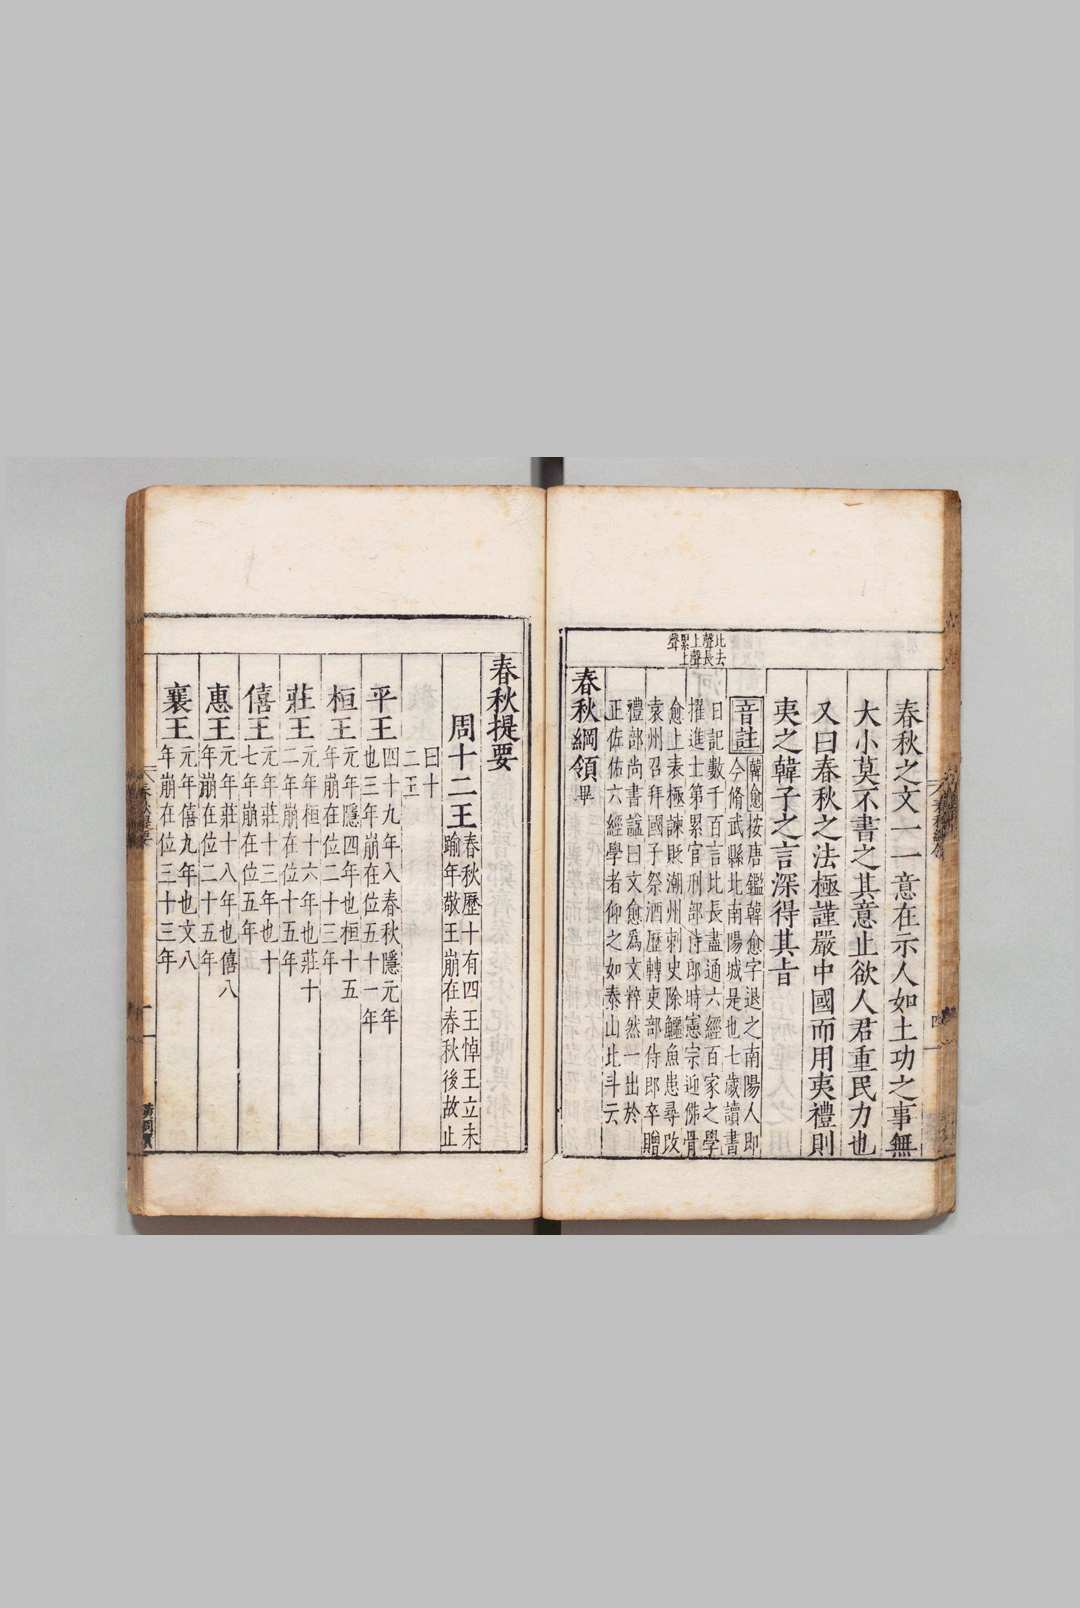 春秋之文一一意在示人如土功之事無
大小莫不書之其意止欲人君重民力也
又曰春秋之法極謹嚴中國而用夷禮則
夷之韓子之言深得其旨
音註
韓愈按唐鑑韓愈字退之南陽人即
今脩武縣比南陽城是也七歲讀書
日記數千百言比長盡通六經百家之學
擢進士第累官刑部侍郎時憲宗迎佛骨
愈上表極諫貶潮州刺史除鱷魚患尋改
袁州召拜國子祭酒歷轉吏部侍郎卒贈
禮部尚書諡曰文愈為文粹然一出於
正佐佑六經學者仰之如泰山北斗云
比去
聲長
上聲
累上
聲
春秋綱領畢
春秋提要
周十二王
春秋歷十有四王悼王立未
踰年敬王崩在春秋後故止
曰十
二王
平王
四十九年入春秋隱元年
也三年崩在位五十一年
桓王
元年隱四年也桓十五
年崩在位二十三年
莊王
元年桓十六年也莊十
二年崩在位十五年
僖王
元年莊十三年也十
七年崩在位五年
惠王
元年莊十八年也僖八
年崩在位二十五年
襄王
元年僖九年也文八
年崩在位三十三年
春秋提要
一